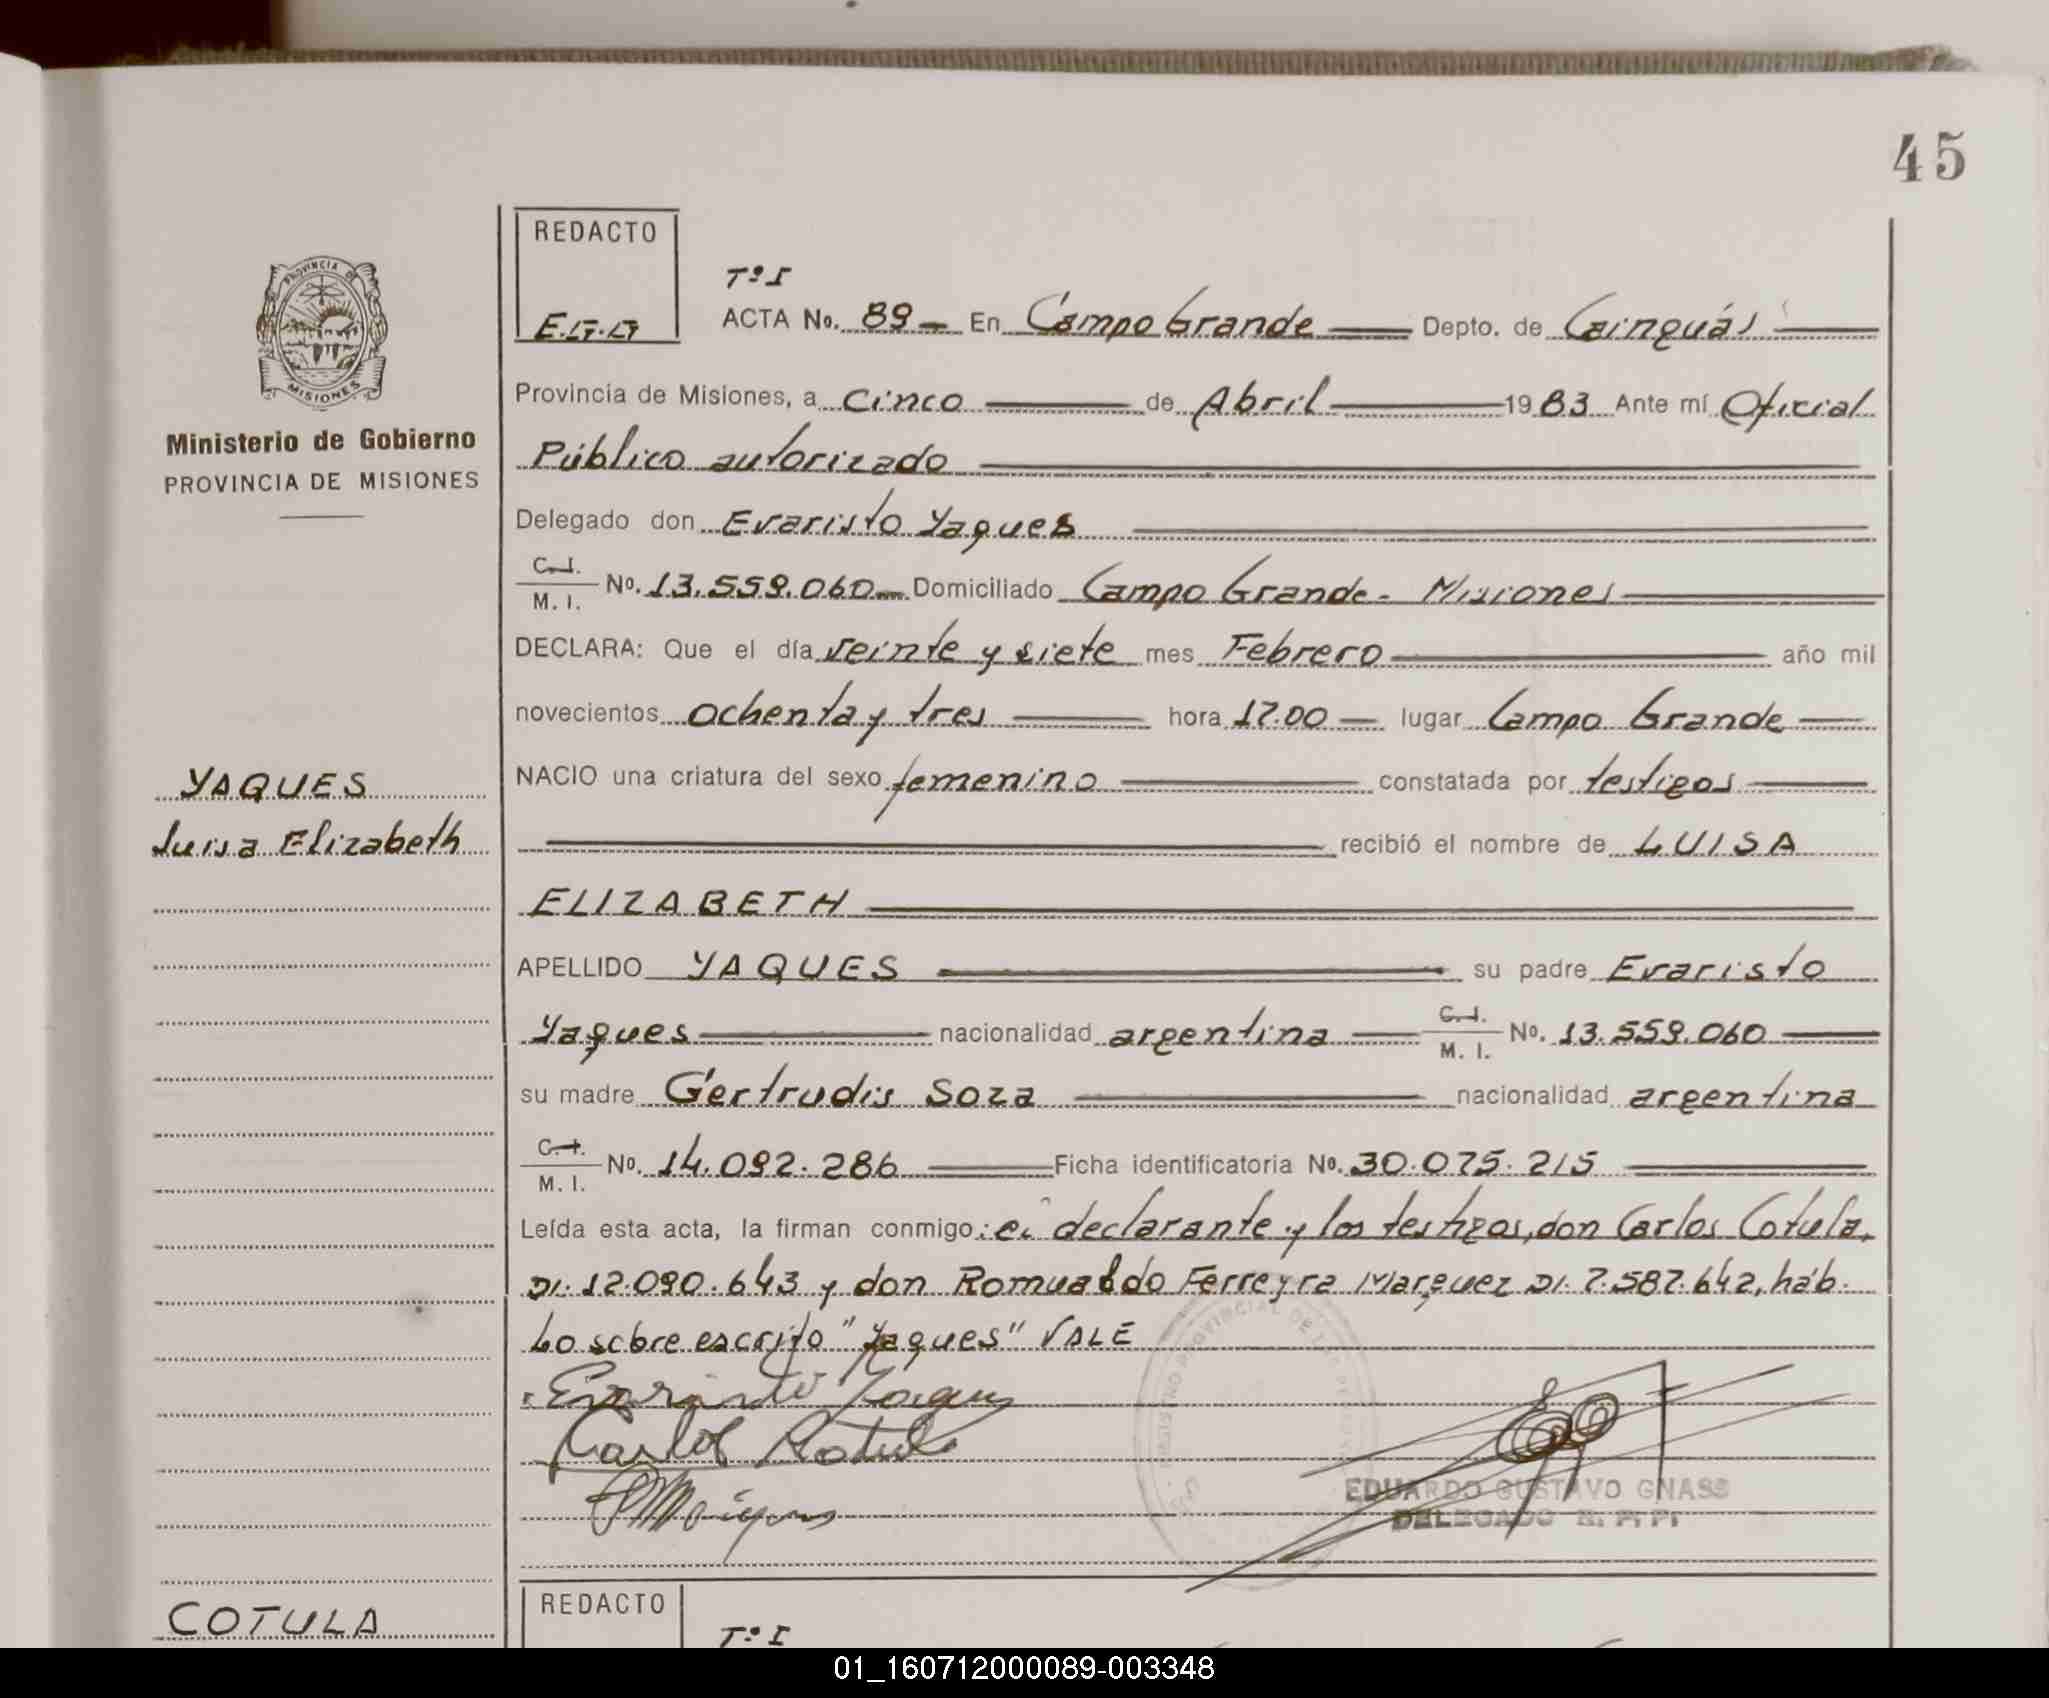 45
REDACTO
E.G.G
PROVINCIA DE
MISIONES
Ministerio de Gobierno
PROVINCIA DE MISIONES
Tº I
ACTA No. 89 En Campo Grande Depto. de Cainguás
Provincia de Misiones, a cinco de Abril 1983 Ante mí Oficial
Público autorizado
Delegado don Evaristo Yaques
C.I. / M. I. No. 13.559.060 Domiciliado Campo Grande - Misiones
DECLARA: Que el día veinte y siete mes Febrero año mil
novecientos ochenta y tres hora 17.00 lugar Campo Grande
YAQUES
Luisa Elizabeth
NACIO una criatura del sexo femenino constatada por testigos
recibió el nombre de LUISA
ELIZABETH
APELLIDO YAQUES su padre Evaristo
Yaques nacionalidad argentina C.I. / M. I. No. 13.559.060
su madre Gertrudis Soza nacionalidad argentina
C.I. / M. I. No. 14.092.286 Ficha identificatoria No. 30.075.215
Leída esta acta, la firman conmigo: el declarante y los testigos, don Carlos Cotula,
DI. 12.090.643 y don Romualdo Ferreyra Marquez DI. 7.587.642, háb.
Lo sobre escrito "Yaques" VALE
Evaristo Yaques
Carlos Cotula
EDUARDO GUSTAVO GNASS
DELEGADO R. P. P.
REDACTO
Tº I
COTULA
01_160712000089-003348